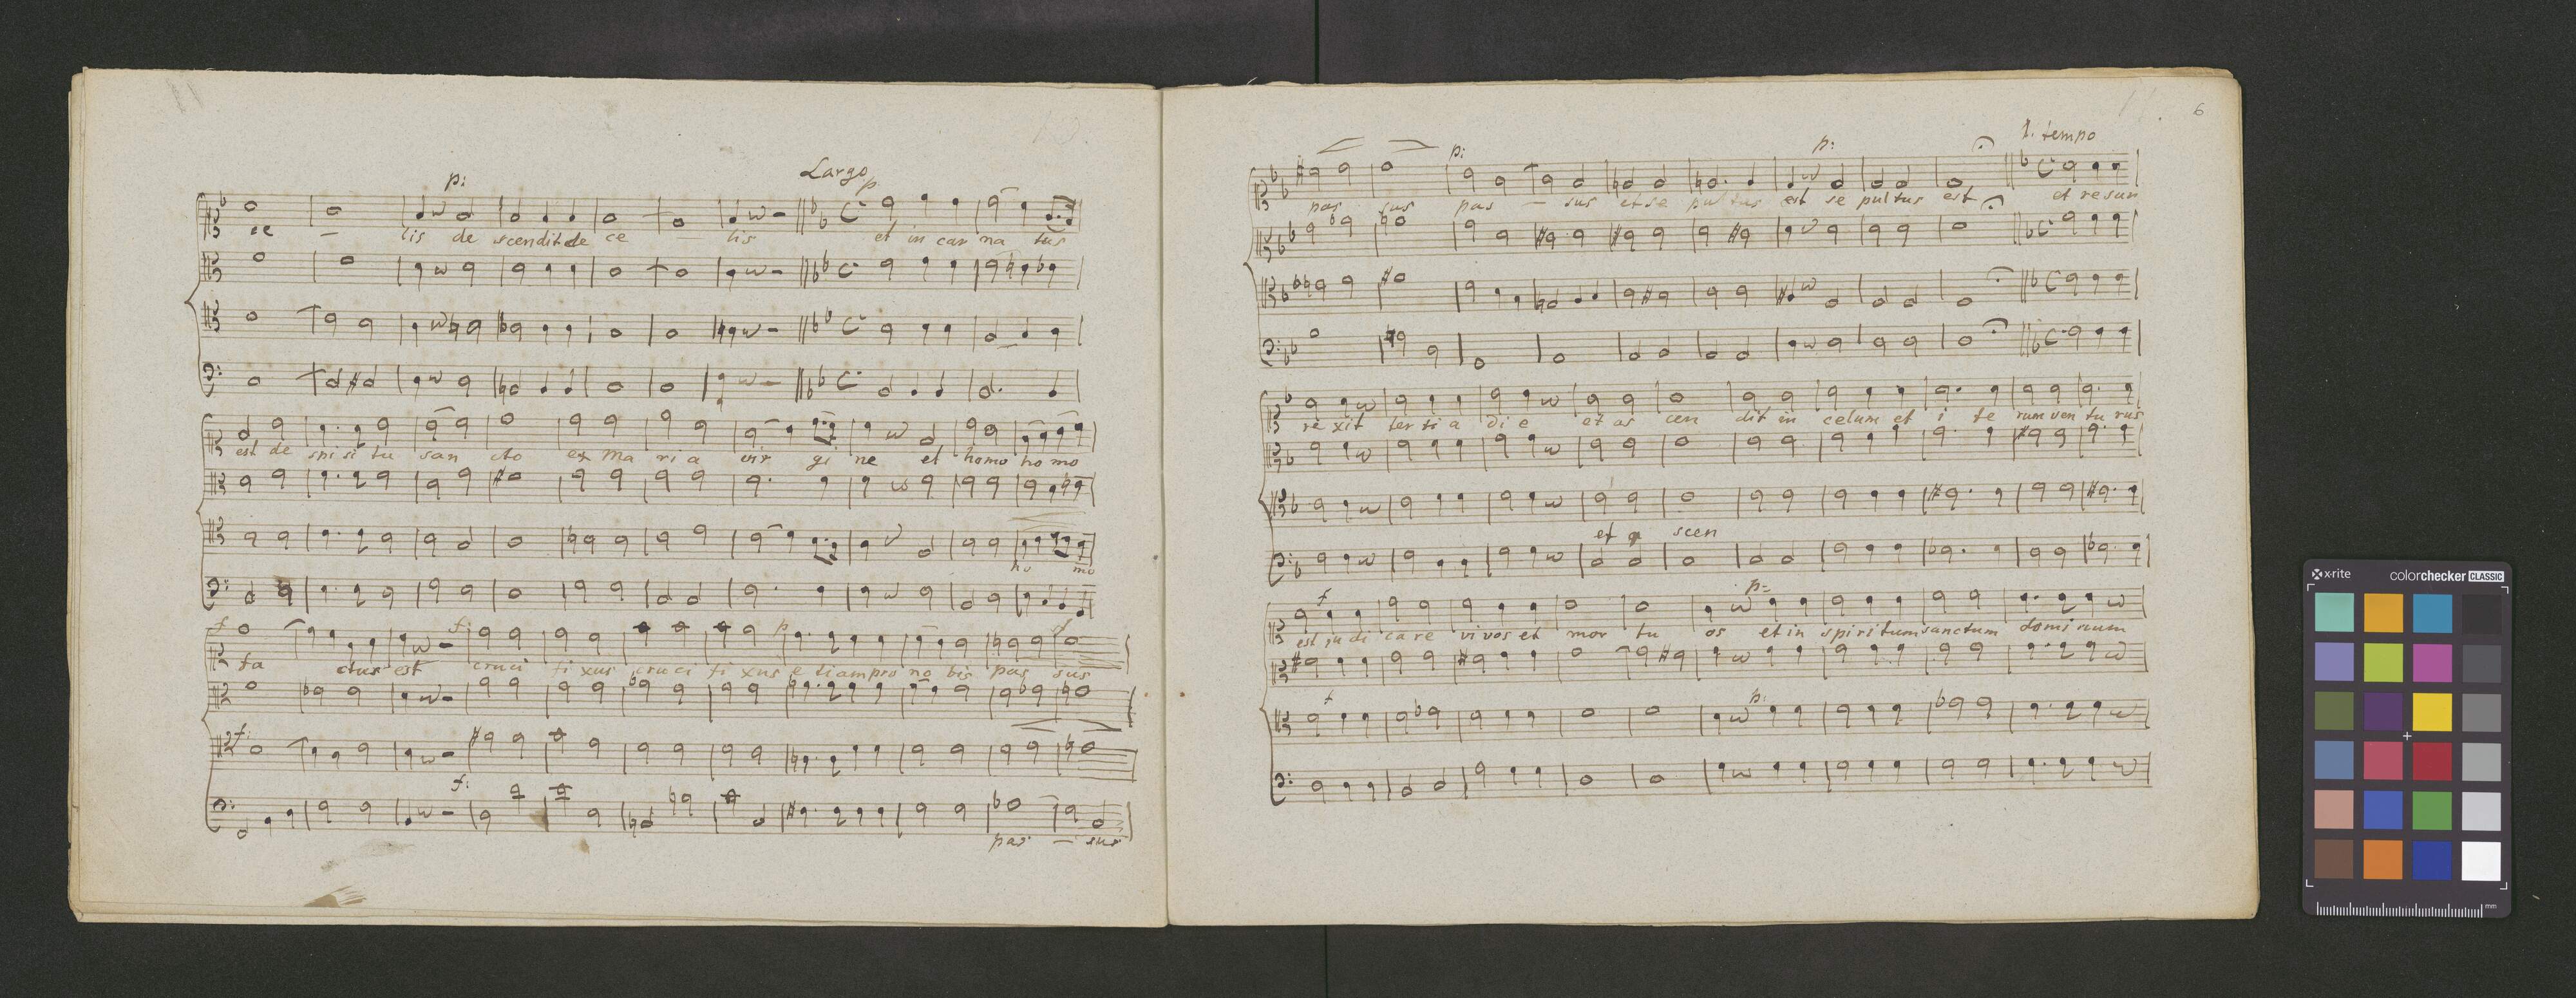 10.
Largo
p:
p
ce — lis de scendit de ce — lis et in car na tus
est de spi ri tu san cto ex Ma ri a vir gi ne et homo ho mo
ho mo
f f: p f
fa ctus est cruci fi xus cruci fi xus e tiam pro no bis pas sus
f:
f:
pas — sus
11. 6
1. tempo
p: p:
pas sus pas — sus et se pul tus est se pul tus est et resur
re xit ter ti a di e et as cen dit in celum et i te rum ven tu rus
et a scen
f p:
est ju di ca re vivos et mor tu os et in spiritum sanctum dominum
f p:
x-rite colorchecker CLASSIC
mm